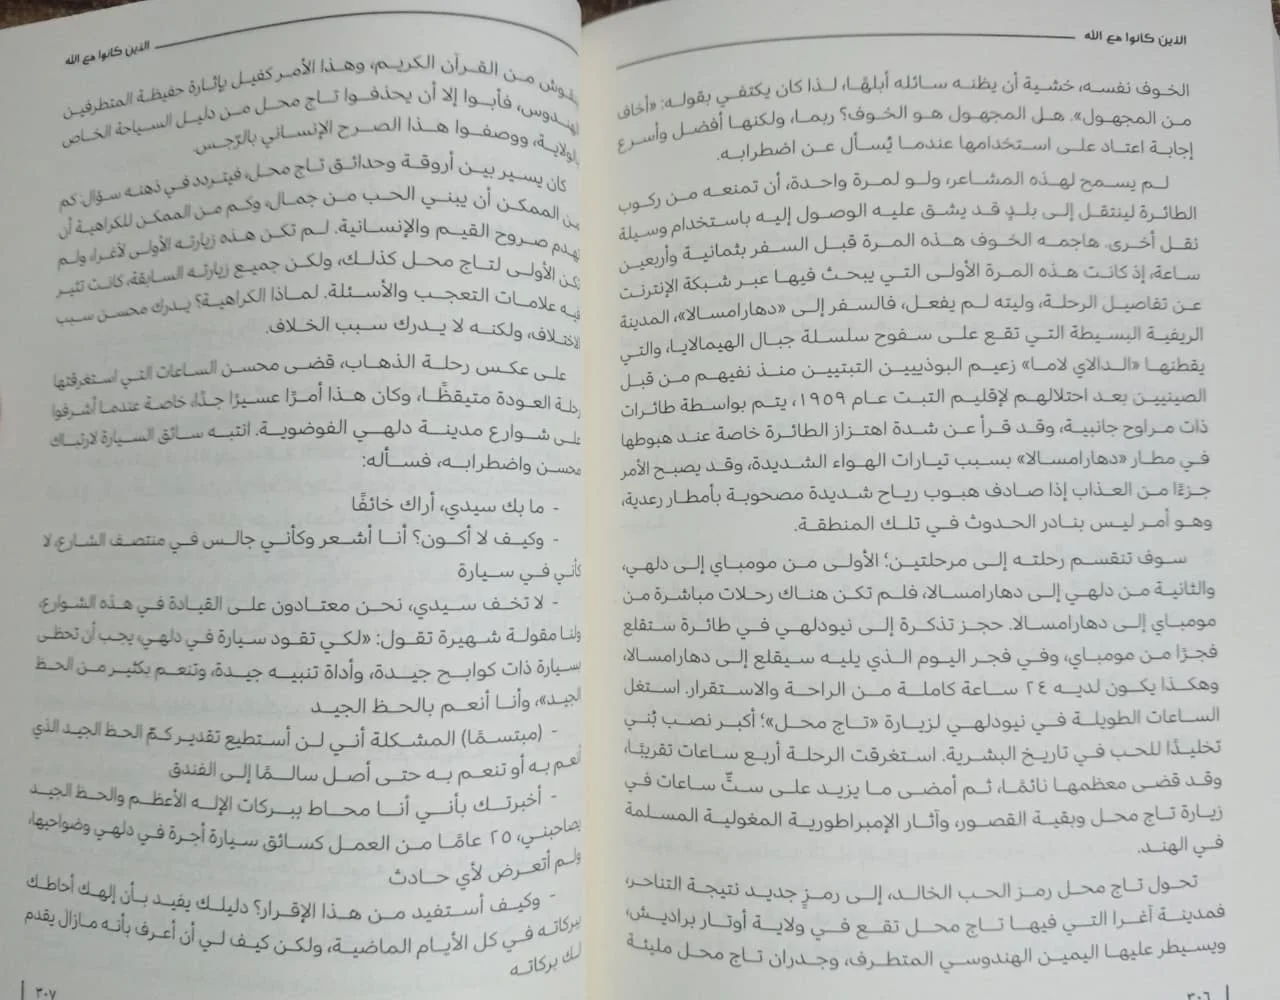 الذين كانوا مع الله
الخوف نفسه، خشية أن يظنه سائله أبلهًا، لذا كان يكتفي بقوله: «أخاف
من المجهول». هل المجهول هو الخوف؟ ربما، ولكنها أفضل وأسرع
إجابة اعتاد على استخدامها عندما يُسأل عن اضطرابه.
لم يسمح لهذه المشاعر، ولو لمرة واحدة، أن تمنعه من ركوب
الطائرة لينتقل إلى بلدٍ قد يشق عليه الوصول إليه باستخدام وسيلة
نقل أخرى. هاجمه الخوف هذه المرة قبل السفر بثمانية وأربعين
ساعة، إذ كانت هذه المرة الأولى التي يبحث فيها عبر شبكة الإنترنت
عن تفاصيل الرحلة، وليته لم يفعل، فالسفر إلى «دهارامسالا»، المدينة
الريفية البسيطة التي تقع على سفوح سلسلة جبال الهيمالايا، والتي
يقطنها «الدالاي لاما» زعيم البوذيين التبتيين منذ نفيهم من قبل
الصينيين بعد احتلالهم لإقليم التبت عام ١٩٥٩، يتم بواسطة طائرات
ذات مراوح جانبية، وقد قرأ عن شدة اهتزاز الطائرة خاصة عند هبوطها
في مطار «دهارامسالا» بسبب تيارات الهواء الشديدة، وقد يصبح الأمر
جزءًا من العذاب إذا صادف هبوب رياح شديدة مصحوبة بأمطار رعدية،
وهو أمر ليس بنادر الحدوث في تلك المنطقة.
سوف تنقسم رحلته إلى مرحلتين؛ الأولى من مومباي إلى دلهي،
والثانية من دلهي إلى دهارامسالا، فلم تكن هناك رحلات مباشرة من
مومباي إلى دهارامسالا. حجز تذكرة إلى نيودلهي في طائرة ستقلع
فجرًا من مومباي، وفي فجر اليوم الذي يليه سيقلع إلى دهارامسالا،
وهكذا يكون لديه ٢٤ ساعة كاملة من الراحة والاستقرار. استغل
الساعات الطويلة في نيودلهي لزيارة «تاج محل»؛ أكبر نصب بُني
تخليدًا للحب في تاريخ البشرية. استغرقت الرحلة أربع ساعات تقريبًا،
وقد قضى معظمها نائمًا، ثم أمضى ما يزيد على ستِّ ساعات في
زيارة تاج محل وبقية القصور، وآثار الإمبراطورية المغولية المسلمة
في الهند.
تحول تاج محل رمز الحب الخالد، إلى رمزٍ جديد نتيجة التناحر،
فمدينة آغرا التي فيها تاج محل تقع في ولاية أوتار براديش،
ويسيطر عليها اليمين الهندوسي المتطرف، وجدران تاج محل مليئة
٣٠٦
الذين كانوا مع الله
بنقوش من القرآن الكريم، وهذا الأمر كفيل بإثارة حفيظة المتطرفين
الهندوس، فأبوا إلا أن يحذفوا تاج محل من دليل السياحة الخاص
بالولاية، ووصفوا هذا الصرح الإنساني بالرّجس.
كان يسير بين أروقة وحدائق تاج محل، فيتردد في ذهنه سؤال: كم
من الممكن أن يبني الحب من جمال، وكم من الممكن للكراهية أن
تهدم صروح القيم والإنسانية. لم تكن هذه زيارته الأولى لآغرا، ولم
تكن الأولى لتاج محل كذلك، ولكن جميع زيارته السابقة، كانت تثير
فيه علامات التعجب والأسئلة. لماذا الكراهية؟ يدرك محسن سبب
الاختلاف، ولكنه لا يدرك سبب الخلاف.
على عكس رحلة الذهاب، قضى محسن الساعات التي استغرقتها
رحلة العودة متيقظًا، وكان هذا أمرًا عسيرًا جدًا، خاصة عندما أشرفوا
على شوارع مدينة دلهي الفوضوية. انتبه سائق السيارة لارتباك
محسن واضطرابه، فسأله:
- ما بك سيدي، أراك خائفًا
- وكيف لا أكون؟ أنا أشعر وكأني جالس في منتصف الشارع، لا
كأني في سيارة
- لا تخف سيدي، نحن معتادون على القيادة في هذه الشوارع،
ولنا مقولة شهيرة تقول: «لكي تقود سيارة في دلهي، يجب أن تحظى
بسيارة ذات كوابح جيدة، وأداة تنبيه جيدة، وتنعم بكثير من الحظ
الجيد»، وأنا أنعم بالحظ الجيد
- (مبتسمًا) المشكلة أني لن أستطيع تقدير كمّ الحظ الجيد الذي
أنعم به أو تنعم به حتى أصل سالمًا إلى الفندق
- أخبرتك بأني أنا محاط ببركات الإله الأعظم والحظ الجيد
يصاحبني، ٢٥ عامًا من العمل كسائق سيارة أجرة في دلهي وضواحيها،
ولم أتعرض لأي حادث
- وكيف أستفيد من هذا الإقرار؟ دليلك يفيد بأن إلهك أحاطك
ببركاته في كل الأيام الماضية، ولكن كيف لي أن أعرف بأنه مازال يقدم
لك بركاته
٣٠٧